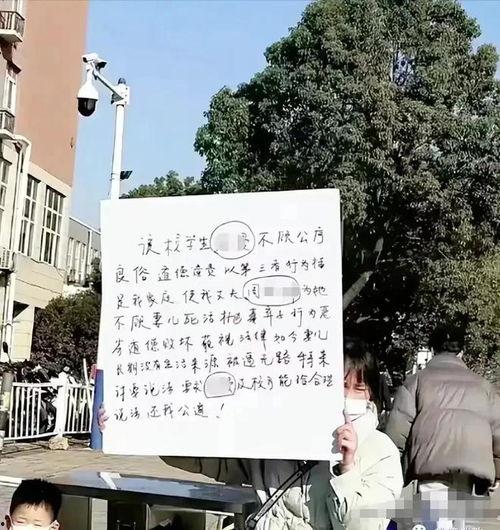 该校学生 不顾公序
良俗 道德底线 以第三者行为插
足我家庭 使我丈夫 周 为她
不顾妻儿死活 抛妻弃子行为恶
劣道德败坏 藐视法律 如今妻儿
长期没有生活来源 被逼无路 特来
讨要说法 要求 及校方能给合理
说法 还我公道！